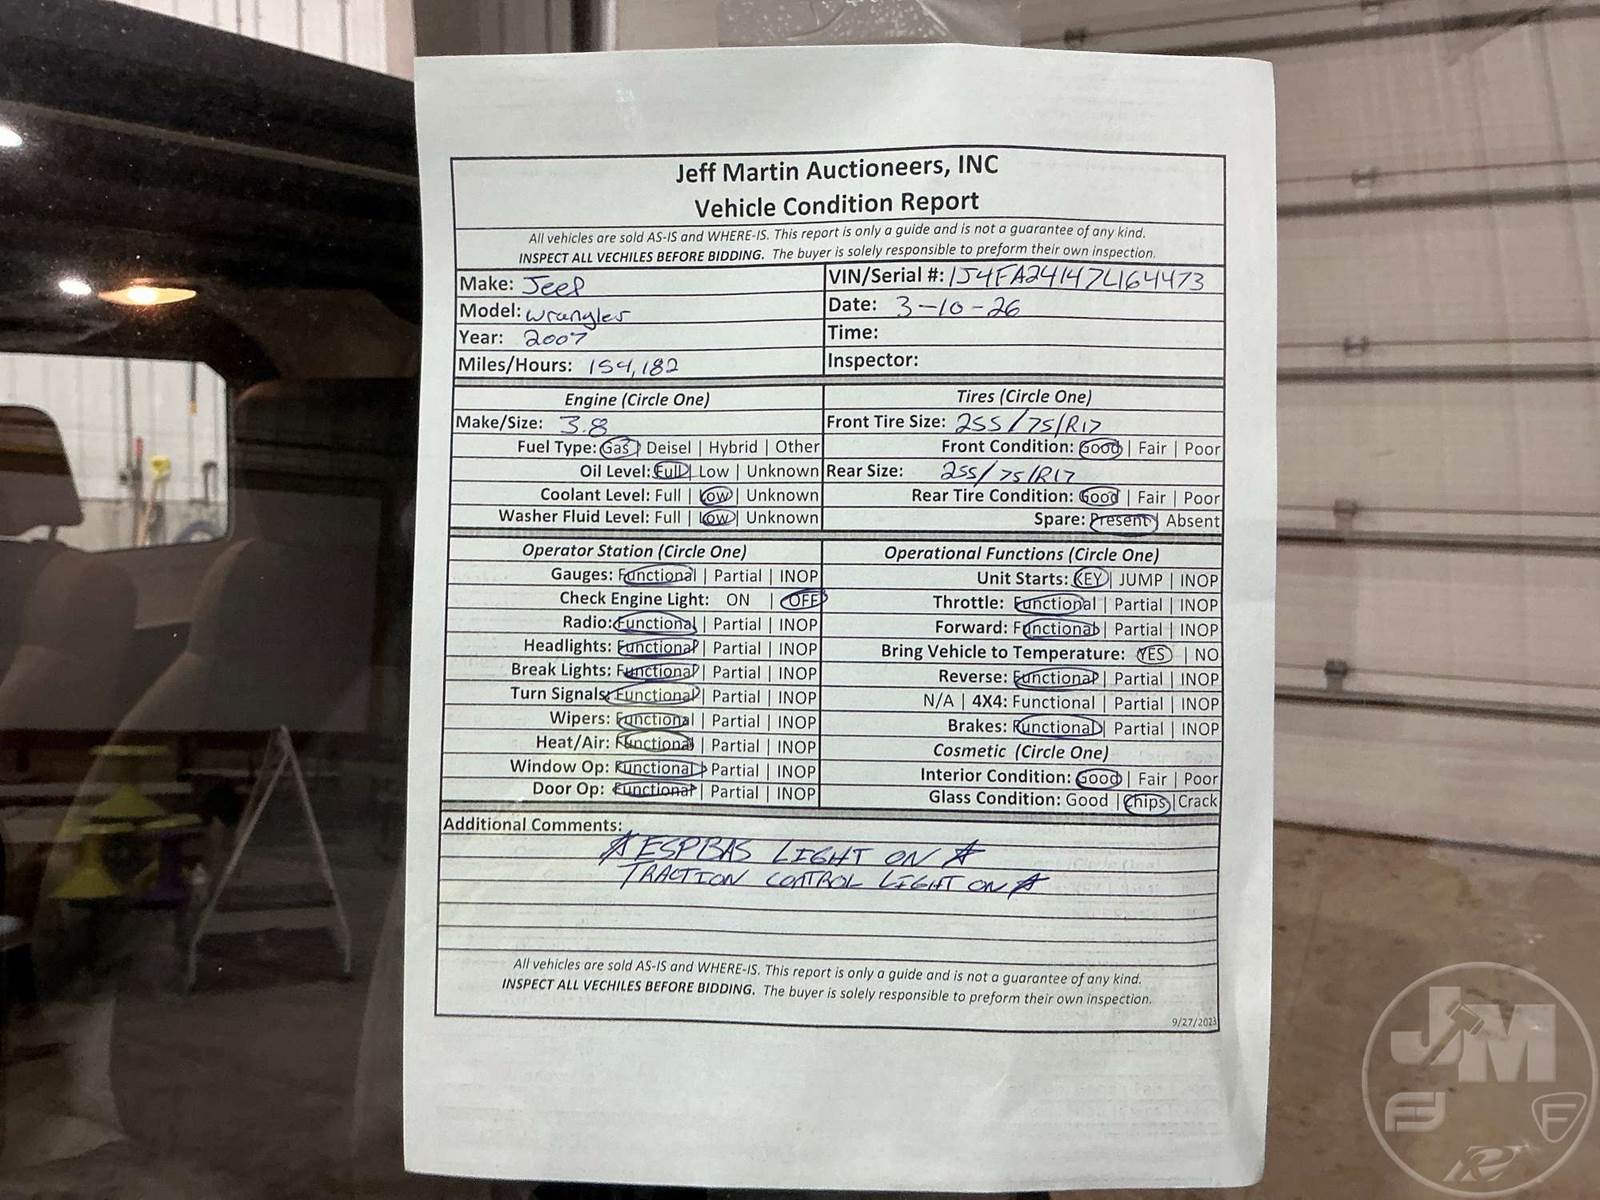 Jeff Martin Auctioneers, INC
Vehicle Condition Report
All vehicles are sold AS-IS and WHERE-IS. This report is only a guide and is not a guarantee of any kind.
INSPECT ALL VECHILES BEFORE BIDDING. The buyer is solely responsible to preform their own inspection.
Make: Jeep
VIN/Serial #: 1J4FA24147L164473
Model: wrangler
Date: 3-10-26
Year: 2007
Time:
Miles/Hours: 154,182
Inspector:
Engine (Circle One)
Tires (Circle One)
Make/Size: 3.8
Front Tire Size: 255/75/R17
Fuel Type: Gas | Deisel | Hybrid | Other
Front Condition: Good | Fair | Poor
Oil Level: Full | Low | Unknown
Rear Size: 255/75/R17
Coolant Level: Full | Low | Unknown
Rear Tire Condition: Good | Fair | Poor
Washer Fluid Level: Full | Low | Unknown
Spare: Present | Absent
Operator Station (Circle One)
Operational Functions (Circle One)
Gauges: Functional | Partial | INOP
Unit Starts: KEY | JUMP | INOP
Check Engine Light: ON | OFF
Throttle: Functional | Partial | INOP
Radio: Functional | Partial | INOP
Forward: Functional | Partial | INOP
Headlights: Functional | Partial | INOP
Bring Vehicle to Temperature: YES | NO
Break Lights: Functional | Partial | INOP
Reverse: Functional | Partial | INOP
Turn Signals: Functional | Partial | INOP
N/A | 4X4: Functional | Partial | INOP
Wipers: Functional | Partial | INOP
Brakes: Functional | Partial | INOP
Heat/Air: Functional | Partial | INOP
Cosmetic (Circle One)
Window Op: Functional | Partial | INOP
Interior Condition: Good | Fair | Poor
Door Op: Functional | Partial | INOP
Glass Condition: Good | Chips | Crack
Additional Comments:
ESPBAS LIGHT ON
TRACTION CONTROL LIGHT ON
All vehicles are sold AS-IS and WHERE-IS. This report is only a guide and is not a guarantee of any kind.
INSPECT ALL VECHILES BEFORE BIDDING. The buyer is solely responsible to preform their own inspection.
9/27/2023
JM